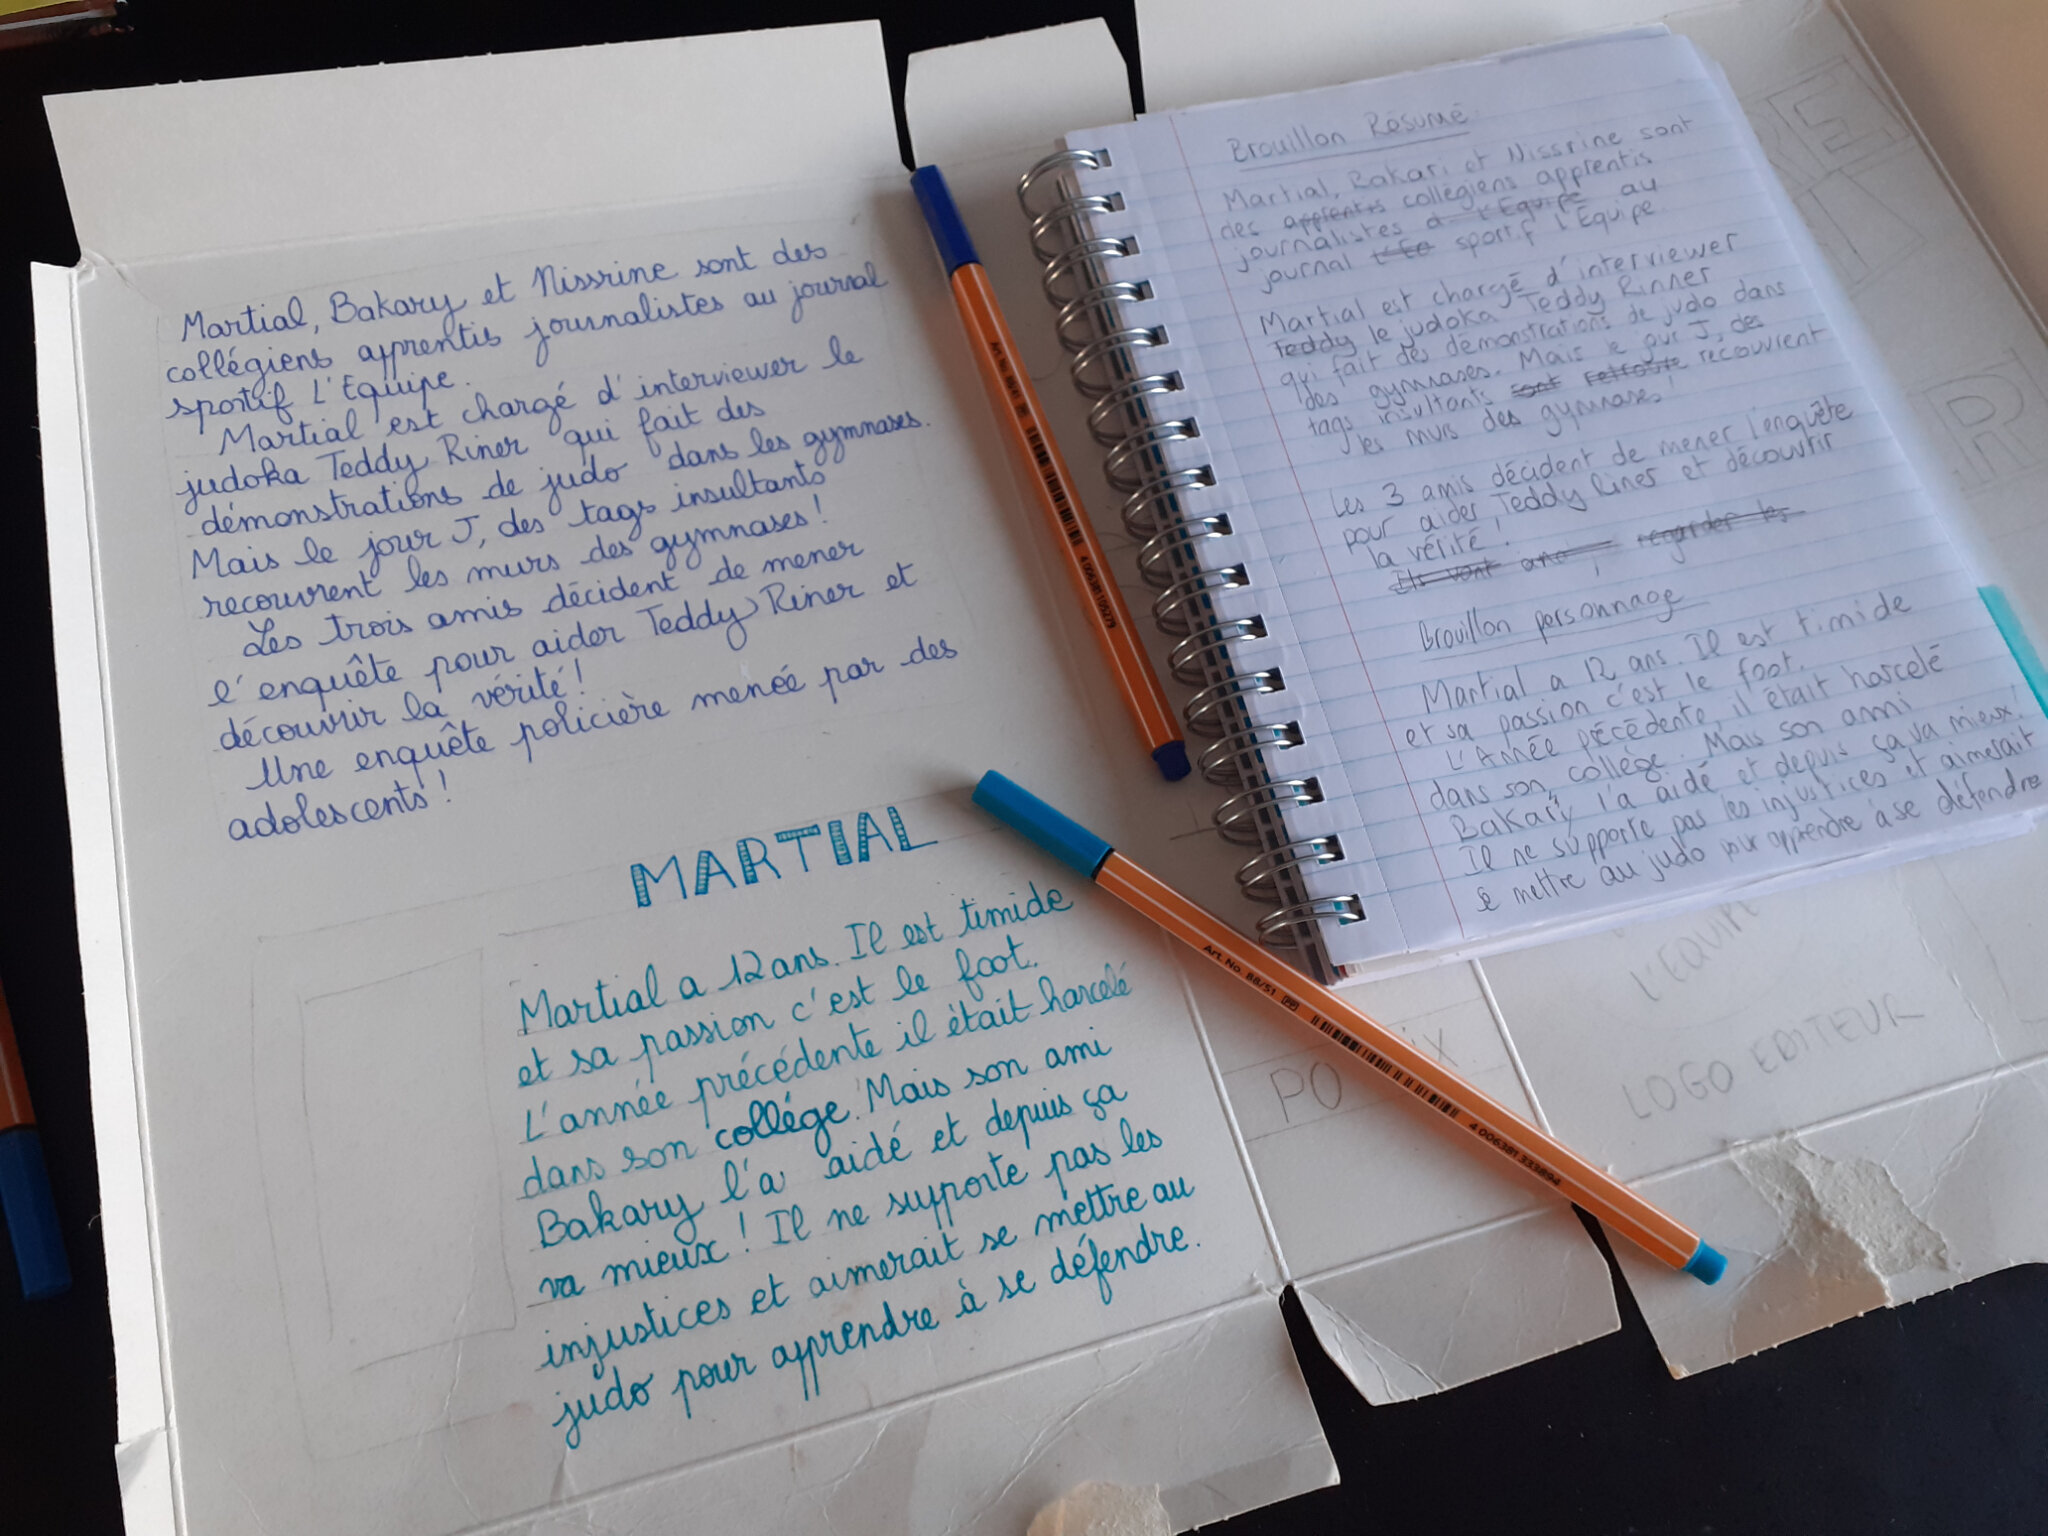 Martial, Bakary et Nissrine sont des
collégiens apprentis journalistes au journal
sportif l'Equipe.
Martial est chargé d'interviewer le
judoka Teddy Riner qui fait des
démonstrations de judo dans les gymnases.
Mais le jour J, des tags insultants
recouvrent les murs des gymnases!
Les trois amis décident de mener
l'enquête pour aider Teddy Riner et
découvrir la vérité!
Une enquête policière menée par des
adolescents!
MARTIAL
Martial a 12 ans. Il est timide
et sa passion c'est le foot.
L'année précédente il était harcelé
dans son collége. Mais son ami
Bakary l'a aidé et depuis ça
va mieux! Il ne supporte pas les
injustices et aimerait se mettre au
judo pour apprendre à se défendre.
Brouillon Résumé
Martial, Bakari et Nissrine sont
des apprentis collégiens apprentis
journalistes à l'Equipe au
journal sportif l'Equipe.
Martial est chargé d'interviewer
Teddy le judoka Teddy Rinner
qui fait des démonstrations de judo dans
des gymnases. Mais le jour J, des
tags insultants sont retrouve recouvrent
les murs des gymnases!
Les 3 amis décident de mener l'enquête
pour aider Teddy Riner et découvrir
la vérité!
Ils vont regarder les
Brouillon personnage
Martial a 12 ans. Il est timide
et sa passion c'est le foot.
L'Année précédente, il était harcelé
dans son collége. Mais son ami
Bakary l'a aidé et depuis ça va mieux!
Il ne supporte pas les injustices et aimerait
se mettre au judo pour apprendre à se défendre
L'EQUIPE
LOGO EDITEUR
PO IX
RE
R
Art. No. 88/51
4 006381 333894
4 006381 105279